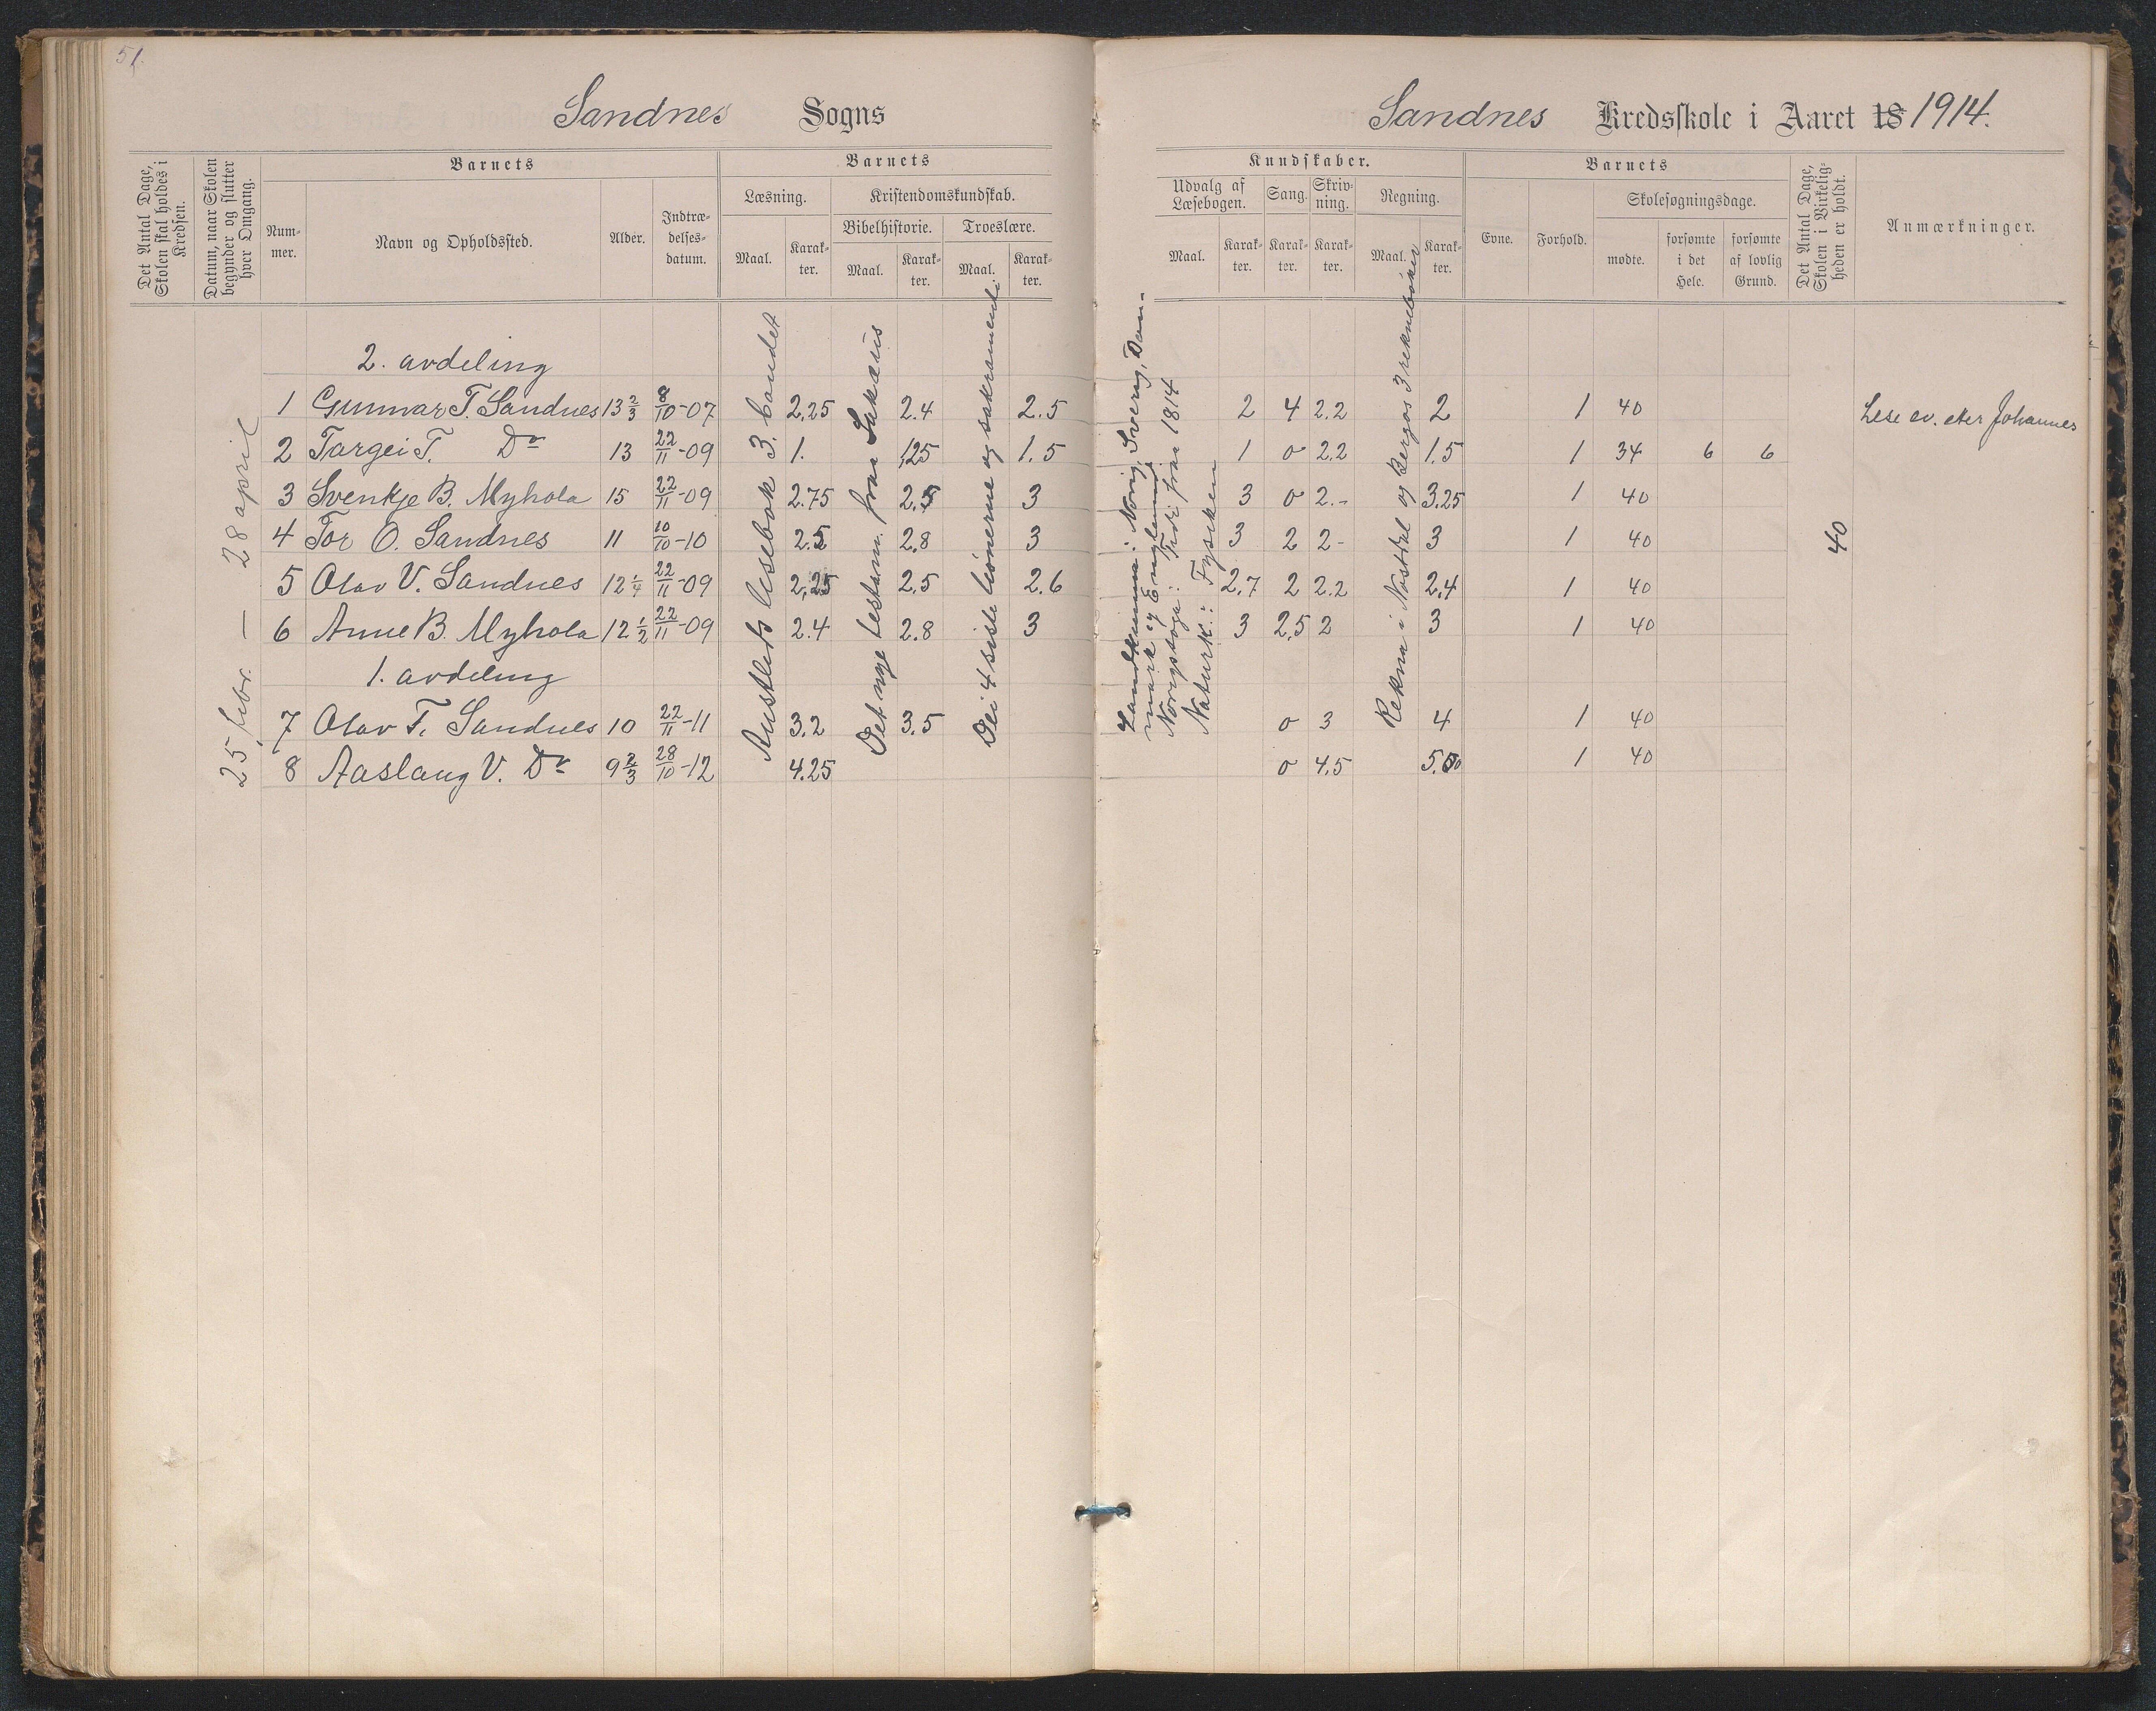 51.
Sandnes Sogns
Det Antal Dage, Skolen skal holdes i Kredsen.
Datum, naar Skolen begynder og slutter hver Omgang.
Barnets
Barnets
Nummer.
Navn og Opholdssted.
Alder.
Indtrædelsesdatum.
Læsning.
Kristendomskundskab.
Bibelhistorie.
Troeslære.
Maal.
Karakter.
Maal.
Karakter.
Maal.
Karakter.
25 febr. — 28 april
Austlids lesebok 3. bandet
Det nye testam. fraa Sakæus
Dei 4 siste bönerne og sakramenti
2. avdeling
1 Gunnar T. Sandnes 13 2/3 8/10-07 2,25 2.4 2.5
2 Targei T. Do 13 22/11-09 1. 1,25 1.5
3 Svenkje B. Myhola 15 22/11-09 2.75 2.5 3
4 Tor O. Sandnes 11 10/10-10 2.5 2.8 3
5 Olav V. Sandnes 12 1/4 22/11-09 2,25 2,5 2.6
6 Anne B. Myhola 12 1/2 22/11-09 2.4 2.8 3
1. avdeling
7 Olav T. Sandnes 10 22/11-11 3.2 3.5
8 Aaslaug V. Do 9 2/3 28/10-12 4.25
Sandnes Kredsskole i Aaret 18 1914.
Kundskaber.
Barnets
Udvalg af Læsebogen.
Sang.
Skrivning.
Regning.
Evne.
Forhold.
Skolesøgningsdage.
Det Antal Dage, Skolen i Virkeligheden er holdt.
Anmærkninger.
Maal.
Karakter.
Karakter.
Karakter.
Maal.
Karakter.
mødte.
forsømte i det Hele.
forsømte af lovlig Grund.
Landkunna: Norig, Sverig, Danmark og England
Norigssoga: Tidi fraa 1814
Naturk.: Fysiken
Rekna i Nost og Bergos 3 reknebøker
2 4 2.2 2 1 40 Lese ev. etter Johannes
1 0 2.2 1.5 1 34 6 6
3 0 2.- 3,25 1 40
3 2 2- 3 1 40
40
2.7 2 2.2 2,4 1 40
3 2,5 2 3 1 40
0 3 4 1 40
0 4,5 5.50 1 40